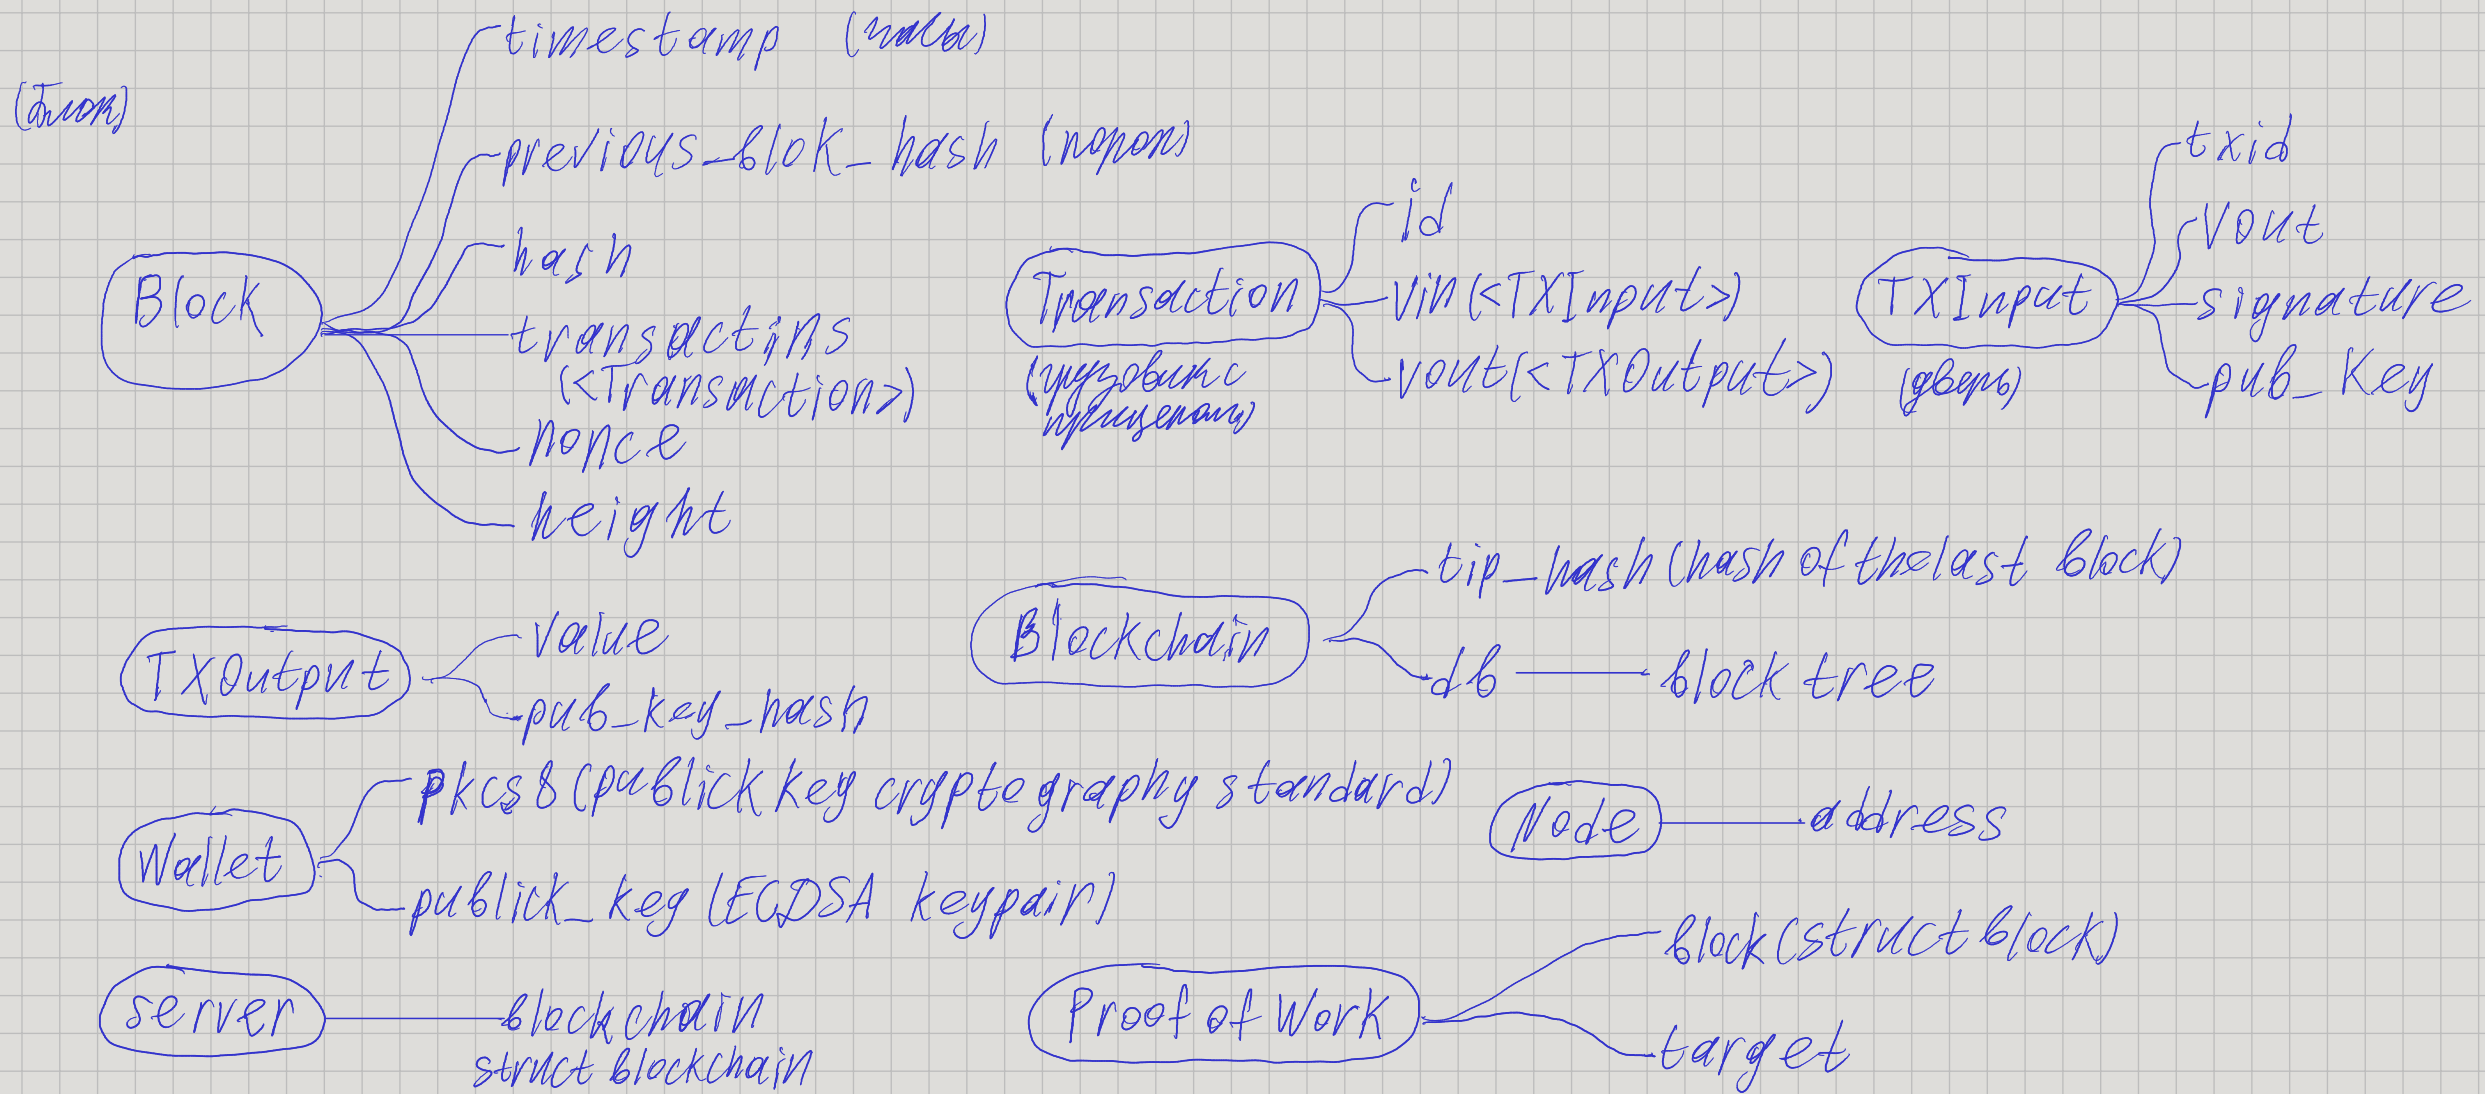 timestamp (часы)
(Блок)
previous_blok_hash (порох)
hash
Block
transactins
(<Transaction>)
nonce
height
id
Transaction
vin(<TXInput>)
vout(<TXOutput>)
(грузовик с
прицепом)
txid
vout
TXInput
signature
(дверь)
pub_Key
TXOutput
value
pub_key_hash
Blockchain
tip_hash (hash of the last block)
db
block tree
Wallet
pkcs8 (publick key cryptography standard)
publick_key (ECDSA keypair)
Node
address
server
blockchain
struct blockchain
Proof of Work
block (struct block)
target